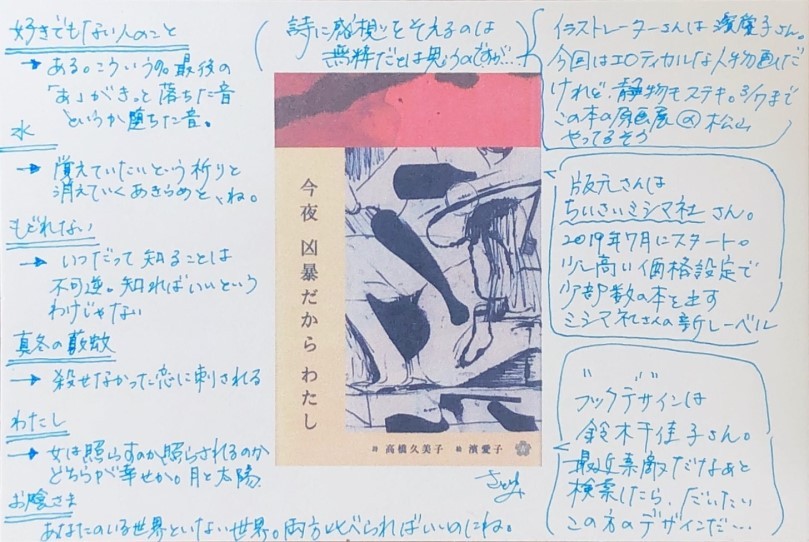 好きでもない人のこと
→ ある。こういうの。最後の
「あ」がきっと落ちた音
というか堕ちた音。
水
→ 覚えていたいという祈りと
消えていくあきらめと、ね。
もどれない
→ いつだって知ることは
不可逆。知ればいいという
わけじゃない
真冬の藪蚊
→ 殺せなかった恋に刺される
わたし
→ 女は照らすのか照らされるのか
どちらが幸せか。月と太陽
お陰さま
あなたのいる世界といない世界。両方比べられればいいのにね。
(詩に感想をそえるのは
無粋だとは思うのですが…)
今夜 凶暴だから わたし
詩 高橋久美子 絵 濱愛子
イラストレーターさんは濱愛子さん。
今回はエロティカルな人物画だ
けれど、静物もステキ。3/7まで
この本の原画展@松山
やってるそう
版元さんは
ちいさいミシマ社さん。
2019年7月にスタート。
少し高い価格設定で
少部数の本を出す
ミシマ社さんの新レーベル
ブックデザインは
鈴木千佳子さん。
最近素敵だなぁと
検索したら、だいたい
この方のデザインだ…